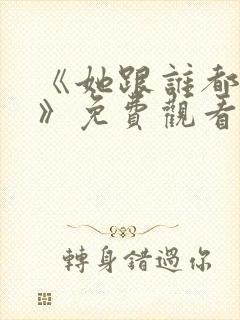 《她跟誰都
》免費觀看
轉身錯過你